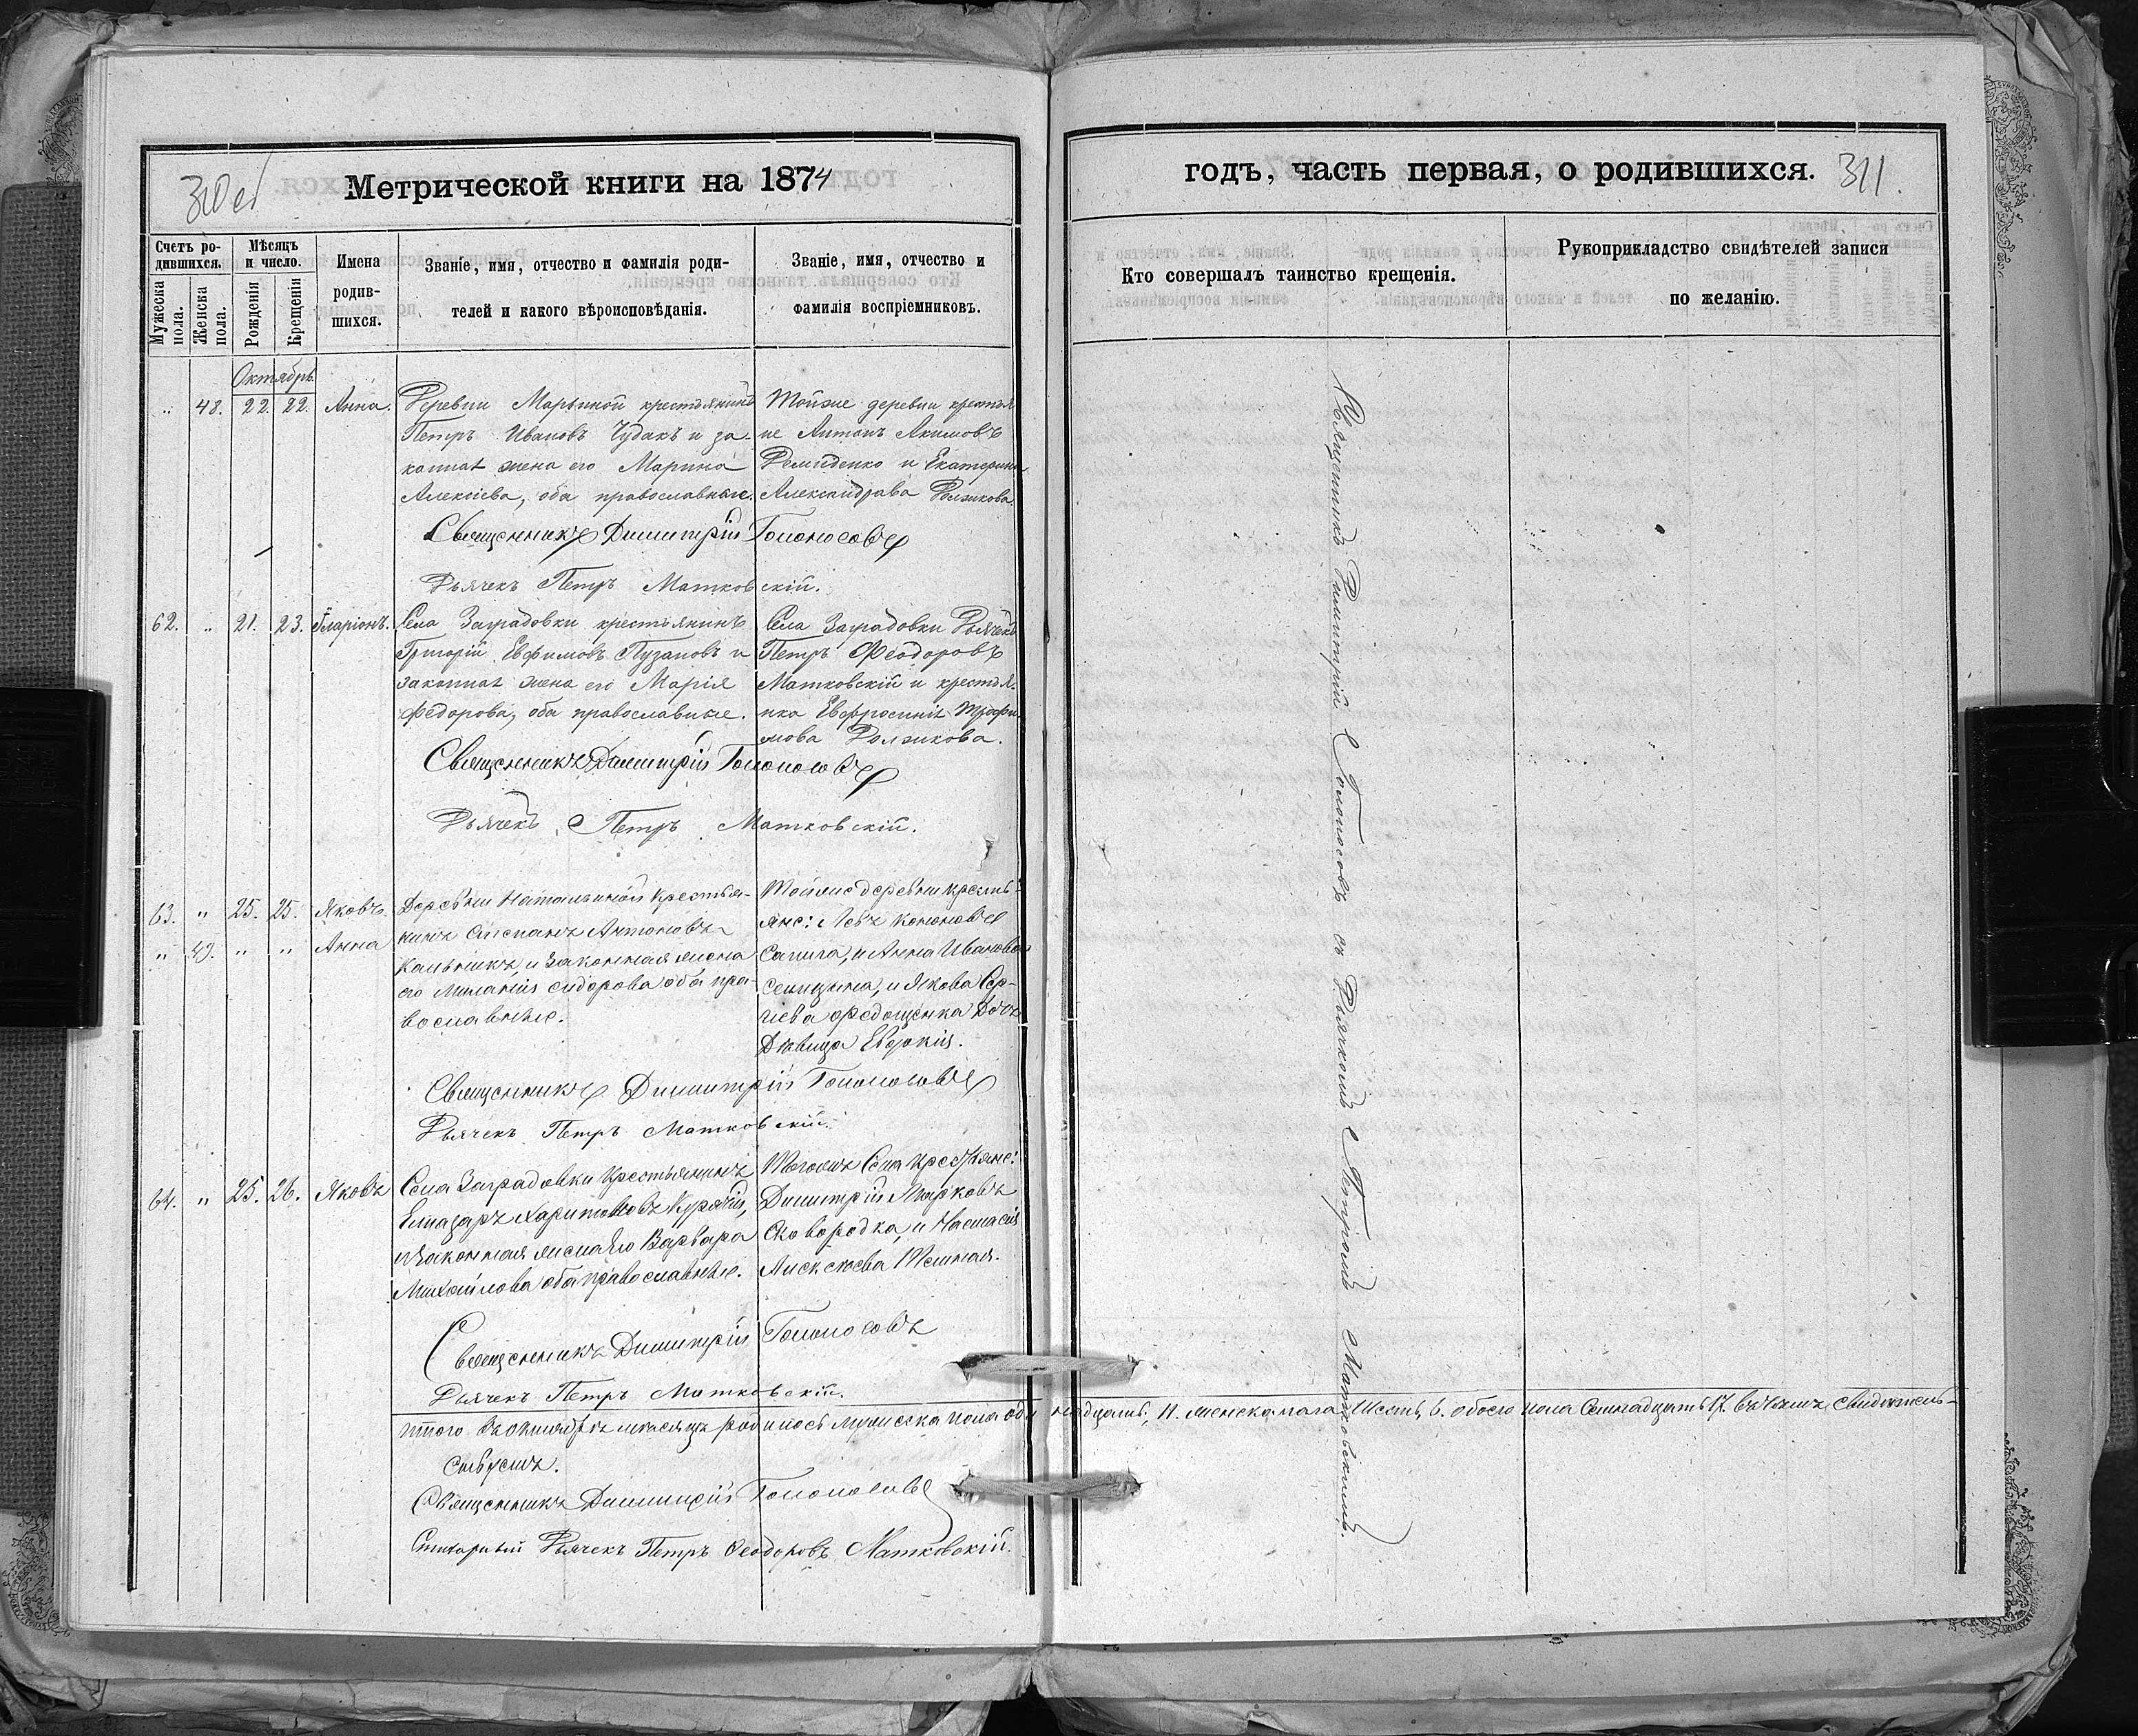 310 об
Метрической книги на 1874
Счетъ ро-
дившихся.
Мѣсяцъ
и число.
Мужеска
пола.
Женска
пола.
Рожденія
Крещенія
Имена
родив-
шихся.
Званіе, имя, отчество и фамилія роди-
телей и какого вѣроисповѣданія.
Званіе, имя, отчество и
фамилія воспріемниковъ.
Октябрь
„ 48. 22. 22. Анна.
Деревни Марьиной крестьянинъ
Петръ Ивановъ Чудакъ и за-
конная жена его Марина
Алексіева, оба православные.
Тойже деревни крестья
не Антонъ Акимовъ
Демиденко и Екатерина
Александрова Должикова.
Священникъ Димитрій Голоносовъ
Дьячекъ Петръ Матковскій.
62. „ 21. 23. Іларіонъ.
Села Заградовки крестьянинъ
Григорій Евфимовъ Пузановъ и
законная жена его Марія
Федорова, оба православные.
Села Заградовки Дьячекъ
Петръ Феодоровъ
Матковскій и крестья-
нка Евфросинія Трофи-
мова Должикова.
Священникъ Димитрій Голоносовъ
Дьячекъ Петръ Матковскій.
63. „ 25. 25. Яковъ.
„ 49. „ „ Анна
Деревни Натальиной крестья-
нинъ Антоновъ
и законная жена
его Миланія Сидорова оба пра-
вославные.
Тойже деревни кресть-
яне: Левъ Кононовъ
Сапига, и Анна Иванова
и Якова Сер-
гіева Федощенка Дочь
Дѣвица Евдокія.
Священникъ Димитрій Голоносовъ
Дьячекъ Петръ Матковскій.
64. „ 25. 26. Яковъ
Села Заградовки Крестьянинъ
Елиазаръ Харитоновъ Курячій,
и законная жена его Варвара
Михайлова оба православные.
Тогожъ Села Крестьяне:
Димитрій Марковъ
Сковородка, и Настасія
Алексѣева Темная.
Священникъ Димитрій Голоносовъ
Дьячекъ Петръ Матковскій.
Итого въ октябрѣ мѣсяцѣ родилось мужеска пола оди
ствуемъ.
Священникъ Димитрій Голоносовъ
Дьячекъ Петръ Феодоровъ Матковскій.
годъ, часть первая, о родившихся.
311.
Кто совершалъ таинство крещенія.
Рукоприкладство свидѣтелей записи
по желанію.
Священникъ Димитрій Голоносовъ съ Дьячкомъ Петромъ Матковскимъ.
надцать, 11. женска пола Шесть, 6. обоего пола Семнадцать 17. въ чемъ свидѣтель-